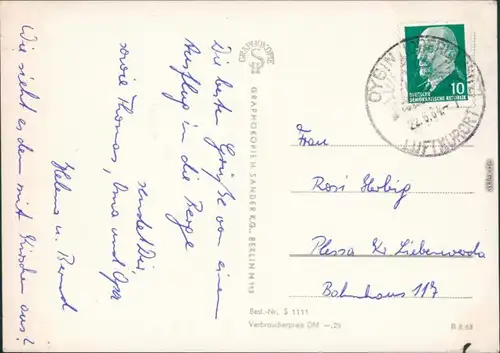 Die besten Grüße von einem
Ausflug in die Berge
sendet Dir
Helma u. Bernd
sowie Thomas, Oma und Opa
Wie sieht es denn mit Kirschen aus?
GRAPHOKOPIE
GRAPHOKOPIE H. SANDER KG., BERLIN N 113
Best.-Nr. S 1111
Verbraucherpreis DM -.25
B 8 63
10
DEUTSCHE
DEMOKRATISCHE REPUBLIK
OYBIN
LUFTKURORT
Frau
Rosi Herbig
Plessa Kr Liebenwerda
Bahnhaus 117